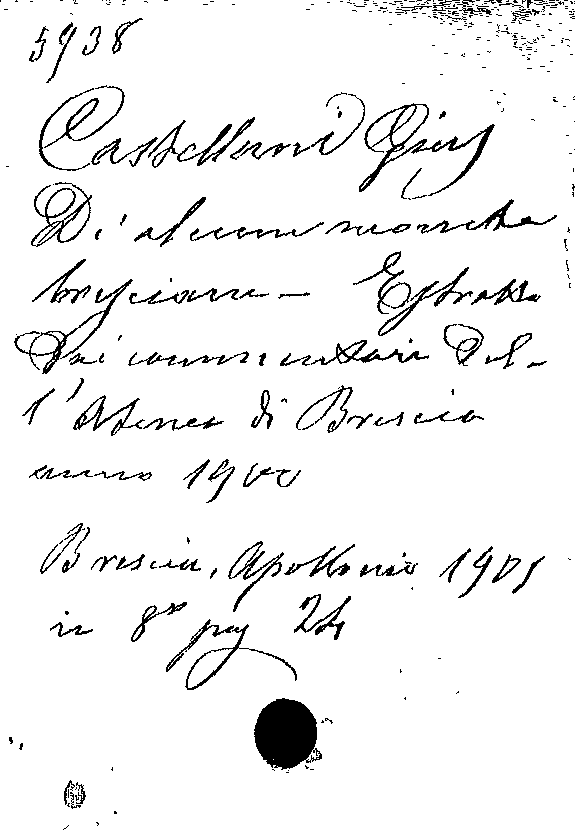 5938
Castellani Gius
Di alcune monete
bresciane – Estratto
Dai commentari del-
l'Ateneo di Brescia
anno 1900
Brescia, Apollonio 1901
in 8° pag 24